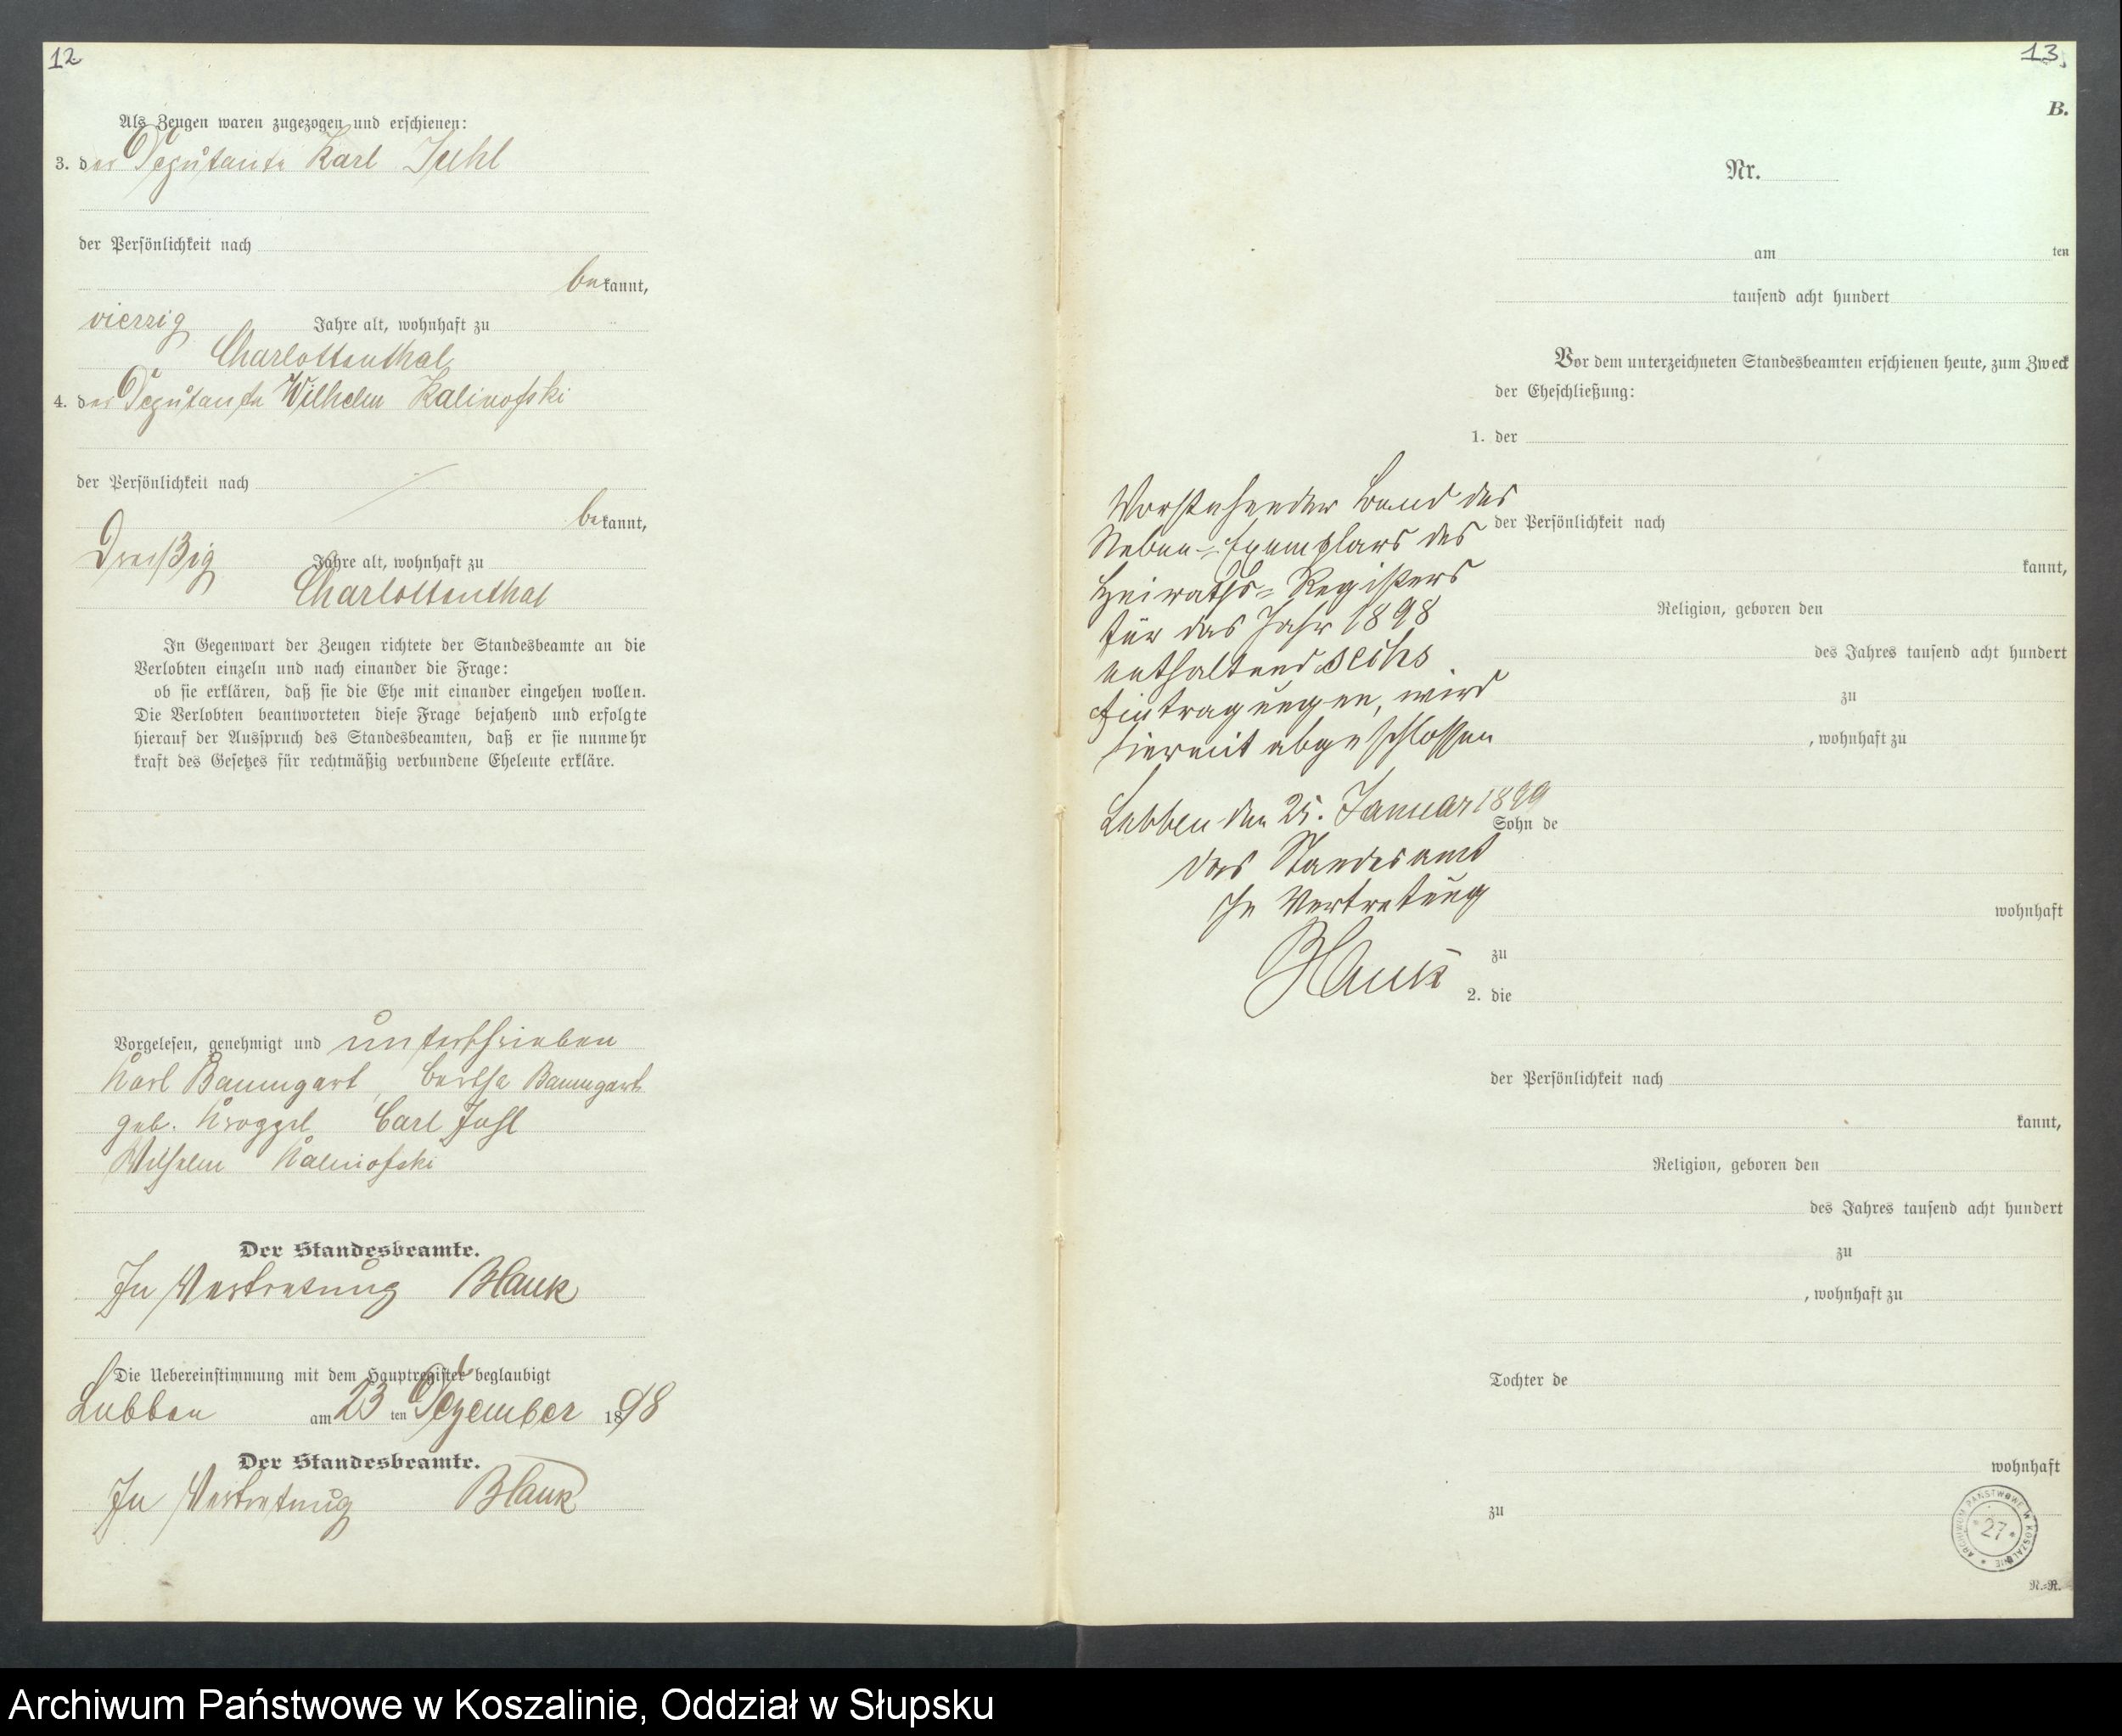 12
Als Zeugen waren zugezogen und erschienen:
3. der Deputant Karl Juhl
der Persönlichkeit nach
bekannt,
vierzig Jahre alt, wohnhaft zu
Charlottenthal
4. der Deputant Wilhelm Kalinofski
der Persönlichkeit nach
bekannt,
Dreißig Jahre alt, wohnhaft zu
Charlottenthal
In Gegenwart der Zeugen richtete der Standesbeamte an die
Verlobten einzeln und nach einander die Frage:
ob sie erklären, daß sie die Ehe mit einander eingehen wollen.
Die Verlobten beantworteten diese Frage bejahend und erfolgte
hierauf der Ausspruch des Standesbeamten, daß er sie nunmehr
kraft des Gesetzes für rechtmäßig verbundene Eheleute erkläre.
Vorgelesen, genehmigt und unterschrieben
Karl Baumgart, Bertha Baumgart
geb. Kroggel Carl Juhl
Wilhelm Kalinofski
Der Standesbeamte.
In Vertretung Blank
Die Uebereinstimmung mit dem Hauptregister beglaubigt
Lubben am 23 ten Dezember 1898
Der Standesbeamte.
In Vertretung Blank
13.
B.
Nr.
am ten
tausend acht hundert
Vor dem unterzeichneten Standesbeamten erschienen heute, zum Zweck
der Eheschließung:
1. der
der Persönlichkeit nach
kannt,
Religion, geboren den
des Jahres tausend acht hundert
zu
, wohnhaft zu
Sohn de
wohnhaft
zu
2. die
der Persönlichkeit nach
kannt,
Religion, geboren den
des Jahres tausend acht hundert
zu
, wohnhaft zu
Tochter de
wohnhaft
zu
Vorstehender Band des
Neben-Exemplars des
Heiraths-Registers
für das Jahr 1898
enthaltend sechs
Eintragungen, wird
hiermit abgeschlossen
Lubben den 25. Januar 1899
Das Standesamt
In Vertretung
Blank
ARCHIWUM PAŃSTWOWE W KOSZALINIE
* 27 *
N.=R.
Archiwum Państwowe w Koszalinie, Oddział w Słupsku